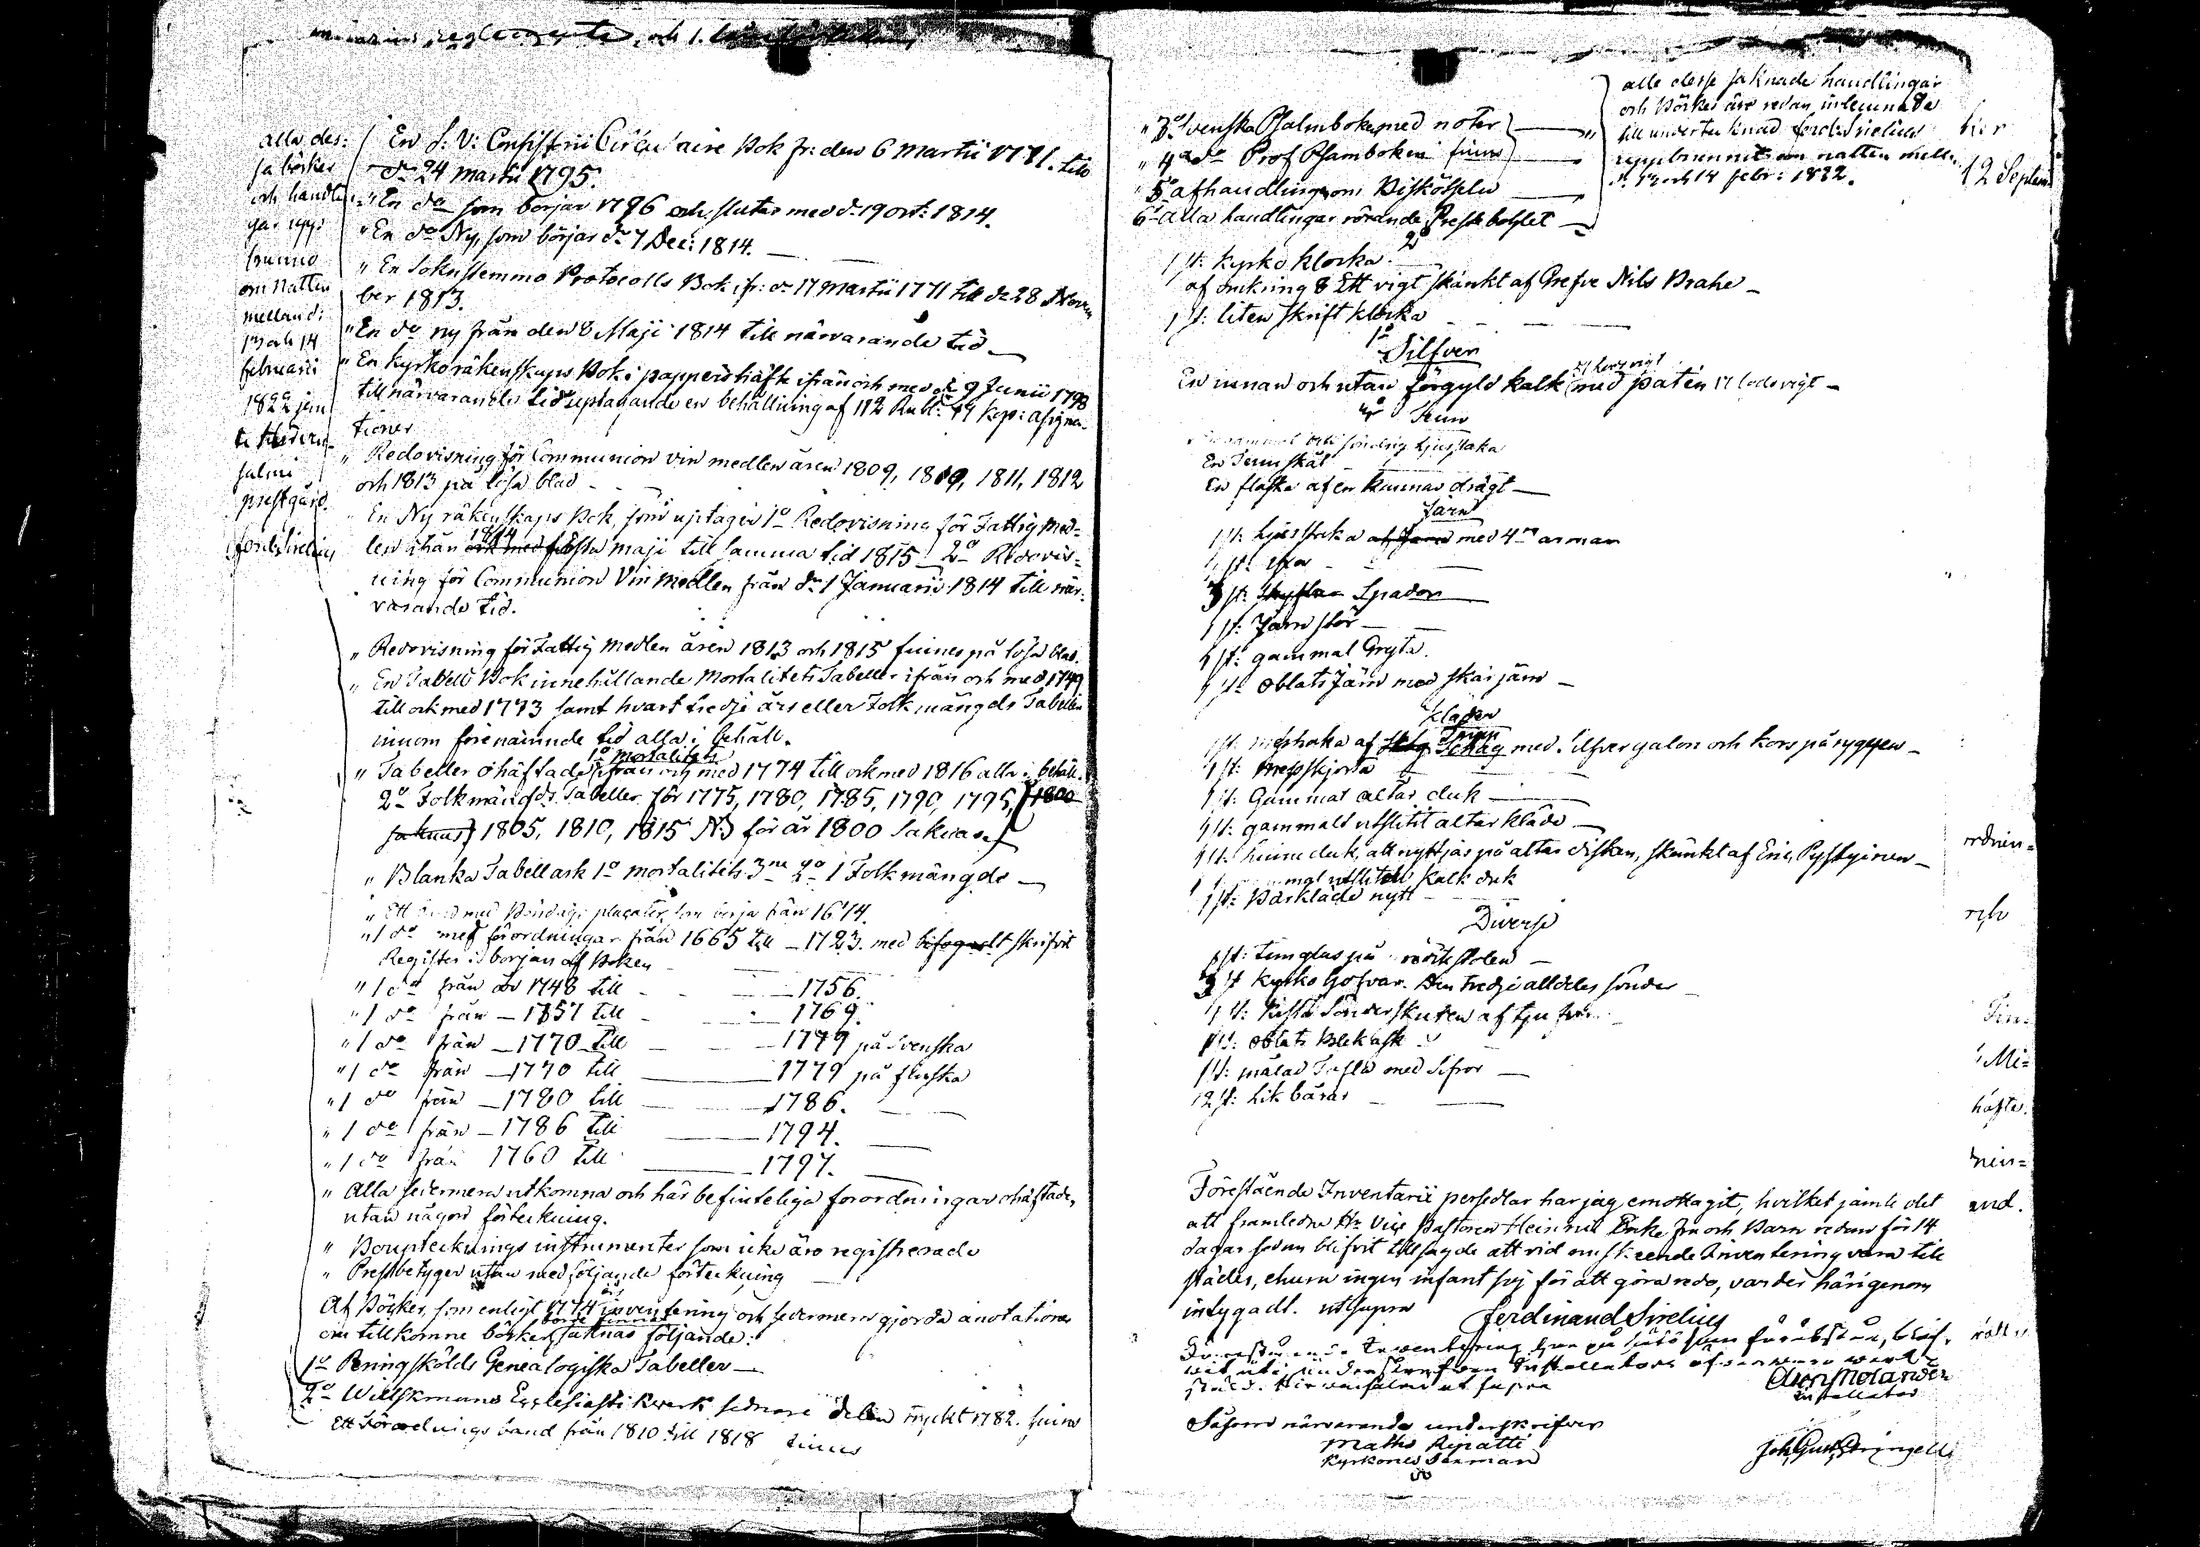 alla des:
sa böcker
och handlin
gar upp
brunno
om natten
mellan d:
13 och 14
februarii
1822 jem
te
salmi
prestgård.
ford: Sirelius
En S: V: Consistorii Circulaire Bok fr: den 6 Martii 1771. till
dn 24 Martii 1795.
" En do som börjar 1796 och slutar med d: 19 oct: 1814.
" En do Ny, som börjar dn 7 Dec: 1814.
" En Sokustemmo Protocolls Bok, fr: dn 17 Martii 1771 till dn 28 Novem
ber 1813.
" En do ny från den 8 Maji 1814 till närvarande tid
" En kyrko räkenskaps Bok i pappershäfte ifrån och med d: 9 Junii 1798
till närvarande tid uptagande en behållning af 112 Rubl: 49 kop: assigna-
tioner
" Redovisning för Communion vin medlen åren 1809, 1810, 1811, 1812
och 1813 på lösa blad
" En Ny räkenskaps Bok, som uptager 1o Redovisning för Fattig med=
len ifrån 1814 Maji till samma tid 1815 2o Redovis=
ning för Communion Vin Medlen från dn 1 Januarii 1814 till när-
varande tid.
" Redovisning för Fattig Medlen åren 1813 och 1815 finnes på lösa blad.
" En Tabell Bok innehållande Mortalitets Tabeller ifrån och med 1749
till och med 1773 samt hvart tredje års eller Folk mängds Tabellen
innom förenämnde tid alla i behåll.
1o Mortalitets
" Tabeller ohäftade ifrån och med 1774 till och med 1816 alla i behåll.
2o Folkmängds Tabeller för 1775, 1780, 1785, 1790, 1795, 1800
saknas 1805, 1810, 1815 NB för år 1800 Saknas
" Blanka Tabellark 1o mortalitets 3ne 2o 1 Folkmängds
" Ett band med placater, som börja från 1674.
" 1 do med förordningar från 1665 till - 1723. med bifogadt skrifvit
Register i början af Boken
" 1 do från år 1748 till 1756.
" 1 do från 1757 till 1769.
" 1 do från 1770 till 1779 på Svenska
" 1 do från 1770 till 1779 på finska
" 1 do från 1780 till 1786.
" 1 do från 1786 till 1794.
" 1 do från 1760 till 1797.
" Alla sedermera utkomna och här befinteliga forordningar ohäftade,
utan någon förteckning.
" Boupteckningsinstrumenter som icke äro registrerade
" Prestbetyger utan medföljande förteckning
Af Böcker, som enligt 1774 års inventering och sedermera gjorda anotationer
om tillkomne böcker saknas följande:
1o Peringskölds Genealogiska Tabeller
2o Willskmans Ecclesiastikverk sednare delen tryckt 1782. finns
Ett Förordnings band från 1810 till 1818 finnes
" 3o Svenska Psalmboken med noter
" 4o do Prof Psamboken finns
" 5o afhandling om Biskötseln
6o Alla handlingar rörande Prestebohlet
alle desse saknade handlingar
och Böcker äro redan inlemnade
till undertecknad ford: Sirelius
uppbrunnit om natten mellan
d: 13 och 14 febr: 1822.
12 Septem
2o
1 st: Kyrko klocka
af omkring 8 vigt skänkt af Grefve Nils Brahe
1 st: liten skrift klocka
1o
Silfver
En innan och utan förgyld kalk med paten 17 lods vigt
Tenn
gammal och söndrig ljusstaka
En Tenn skål
En flaska af en kannas drägt
Järn
1 st: ljusstaka af Järn med 4ra armar
1 st: Yxa
3 st: Spador
1 st: Järn stör
1 st: gammal Gryta.
1 st: Oblats Järn med skärjärn
kläder
1 st: messhaka af med Silfvergalon och kors på ryggen
1 st: messskjorta
1 st: Gammal altar duk
1 st: gammalt utslitit altar kläde
1 st: linne duk, att nyttjas på altar disken, skänkt af Eric Pystyinen
1 st: gammal utsliten kalk duk
1 st: Bårkläde nytt
Diverse
1 st: timglas på
3 st kyrko håfvar. Den tredje alldeles sönder
1 st: Kista Sönderskuren af tjufvar
1 st: oblats Bleck ask
1 st: målad Tafla med Sifror
12 st: Lik bårar
Förestående Inventarii persedlar har jag emottagit, hvilket jämte det
att framledne Hr Vice Pastoren Heinrici Enke fru och Barn redan för 14
dagar sedan blifvit tillsagde att vid omskeende Inventering vara till
städes, ehuru ingen infant sej för att göra redo, varder härigenom
intygadt. ut supra
Ferdinand Sirelius
städ. ut supra
Installator
Såsom närvarande underskrifver
Maths Repatti
Kyrkones
rdnin=
Mi=
häfte.
nin=
and.